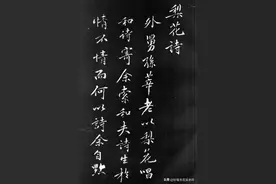 梨花詩
外舅孫莘老以梨花唱
和詩寄余索和夫詩生於
情不情而何以詩余自黜